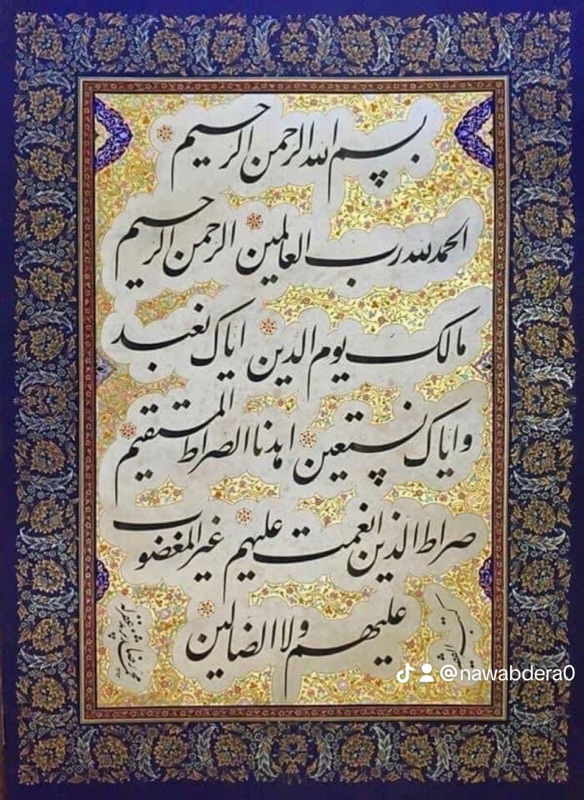 بسم الله الرحمن الرحیم
الحمد لله رب العالمین الرحمن الرحیم
مالک یوم الدین ایاک نعبد
وایاک نستعین اهدنا الصراط المستقیم
صراط الذین انعمت علیهم غیر المغضوب
علیهم ولا الضالین
@nawabdera0